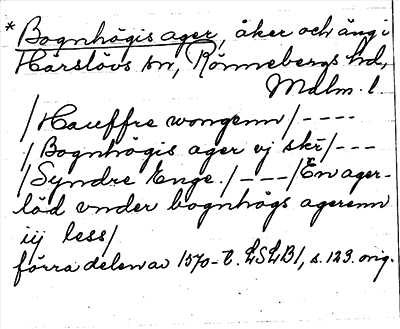 * Bognhögis ager, åker och äng i
Härslövs sn, Rönnebergs hd,
Malm. l.
/Hauffre wongenn/----
/Bognhögis ager vj skr̄/---
/Syndre Enge./---/En ager-
löd vnder bognhögs agerenn
iij less/
förra delen av 1570-t. LSLB1, s. 123. orig.